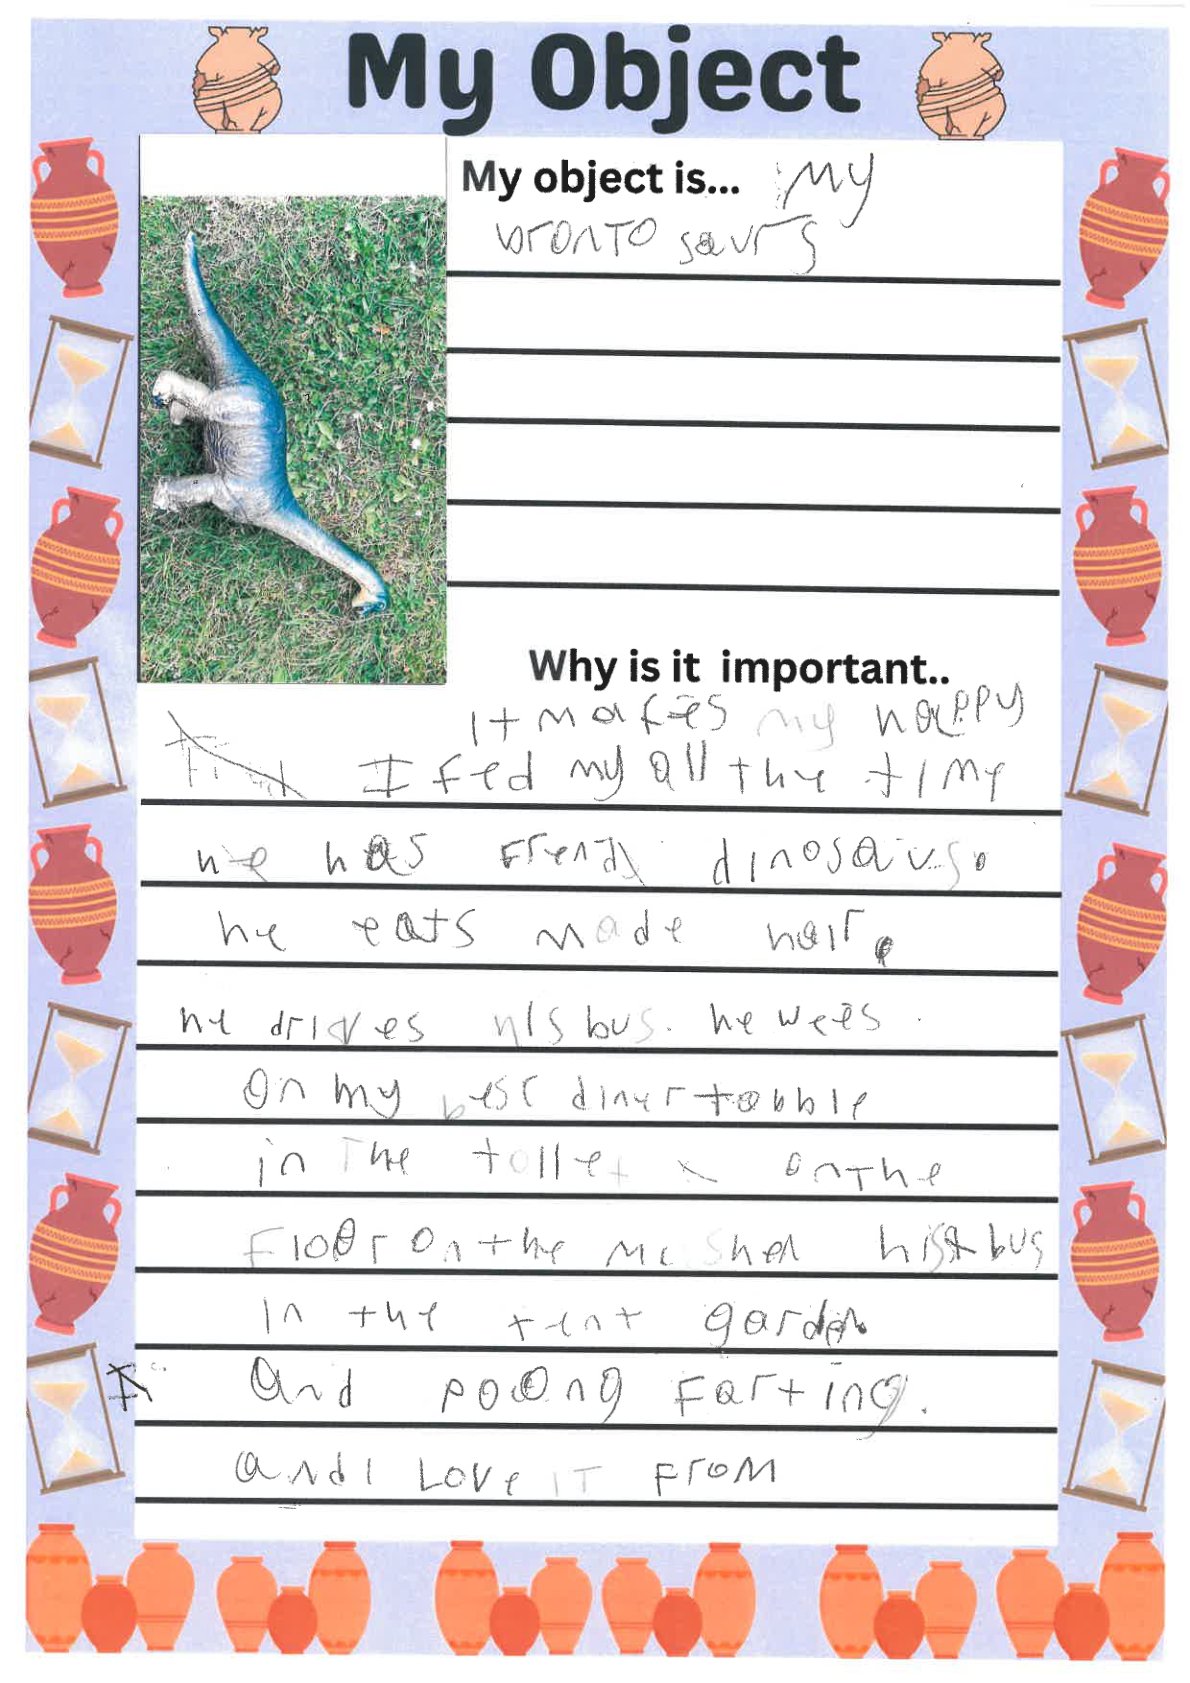 My Object
My object is... My
bronto saurs
Why is it important..
It makes my happy
I fed my all the time
he has friends dinosaurs.
he eats made hair.
he drives his bus. he wees.
on my best diner tabble
in the toilet on the
floor on the me shen his bus
in the tent garden
and pooong farting.
and I Love IT From